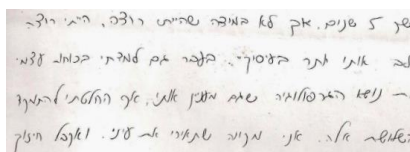 שך 5 שנים. אך לא במידה שהייתי רוצה, הייתי רוצה
אותי יותר בעיסוק. בעבר גם למדתי בכוחות עצמי
נושא הגרפולוגיה שגם מעניין אותי, אך החלטתי להתמקד
בשלושת אלה. אני מקווה שתאירי את עיני. ואקבל חיזוק